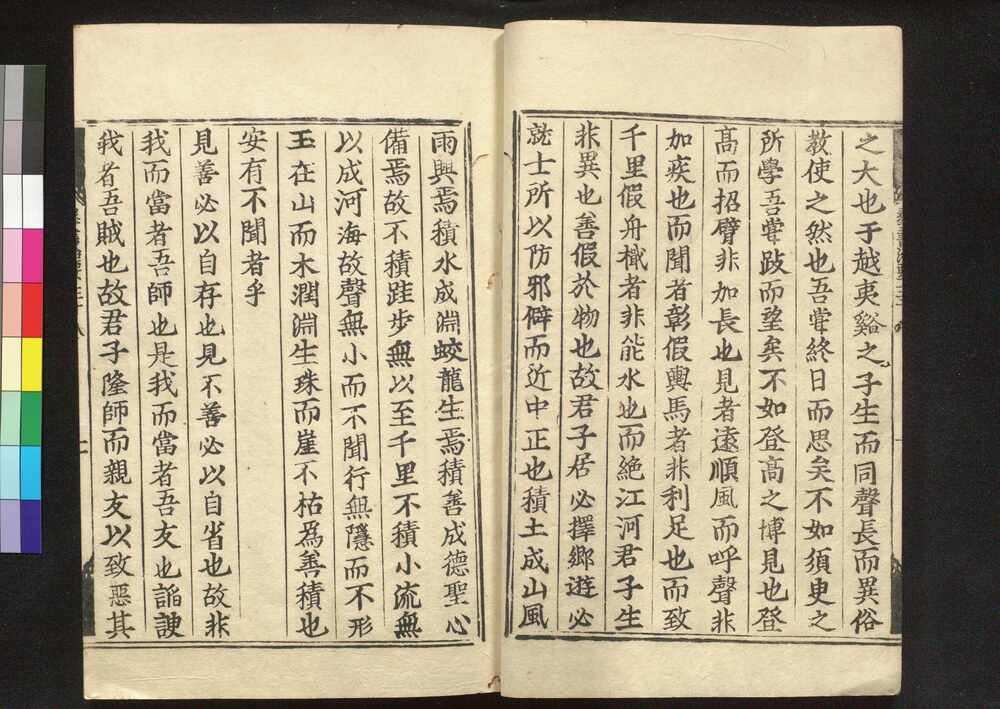 之大也于越夷谿之子生而同聲長而異俗
教使之然也吾嘗終日而思矣不如須臾之
所學吾嘗跂而望矣不如登高之博見也登
高而招臂非加長也見者遠順風而呼聲非
加疾也而聞者彰假輿馬者非利足也而致
千里假舟檝者非能水也而絶江河君子生
非異也善假於物也故君子居必擇鄉遊必
就士所以防邪僻而近中正也積土成山風
雨興焉積水成淵蛟龍生焉積善成德聖心
備焉故不積跬步無以至千里不積小流無
以成河海故聲無小而不聞行無隱而不形
玉在山而木潤淵生珠而崖不枯為善積也
安有不聞者乎
見善必以自存也見不善必以自省也故非
我而當者吾師也是我而當者吾友也謟諛
我者吾賊也故君子隆師而親友以致惡其